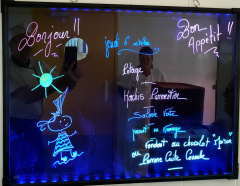 Bonjour !!
Bon Appétit !!
jeudi 6 octobre
Potage
Hachis Parmentier
Salade Verte
yaourt ou fromage
fondant au chocolat "maison"
ou Pomme Cuite Cannelle